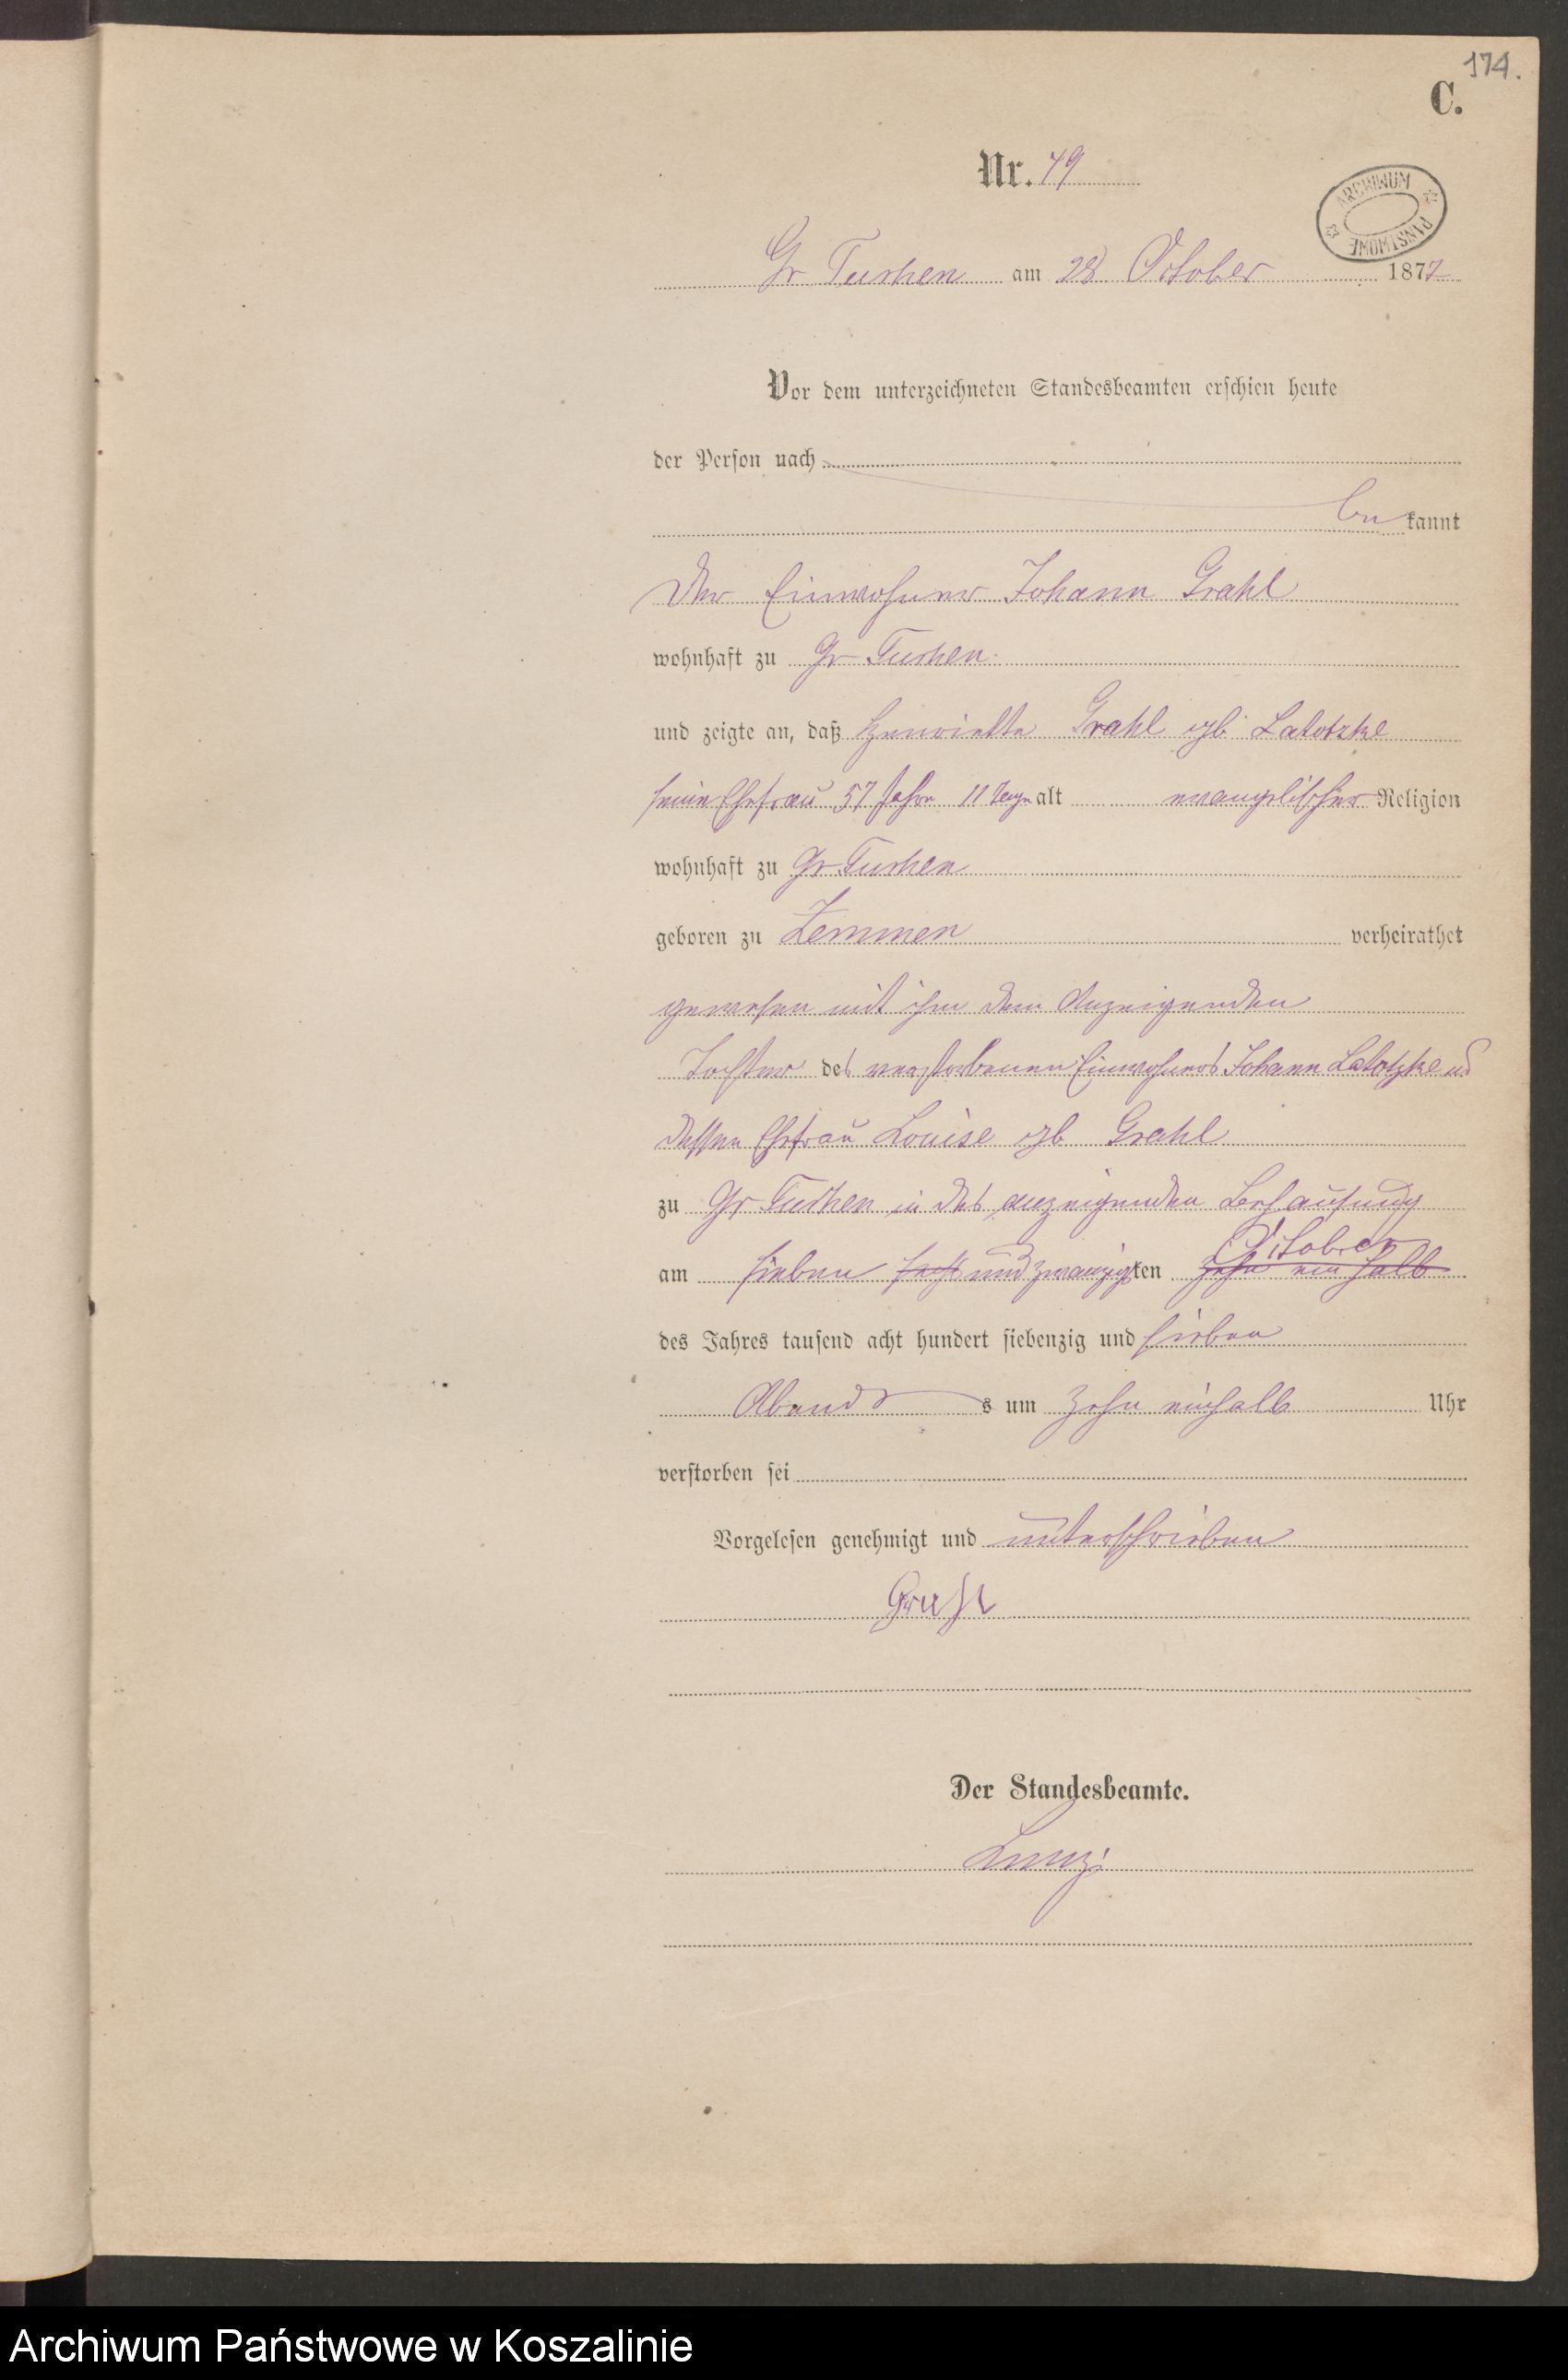 174.
C.
Nr. 49
ARCHIWUM PAŃSTWOWE
Gr Tuchen am 28 October 1877
Vor dem unterzeichneten Standesbeamten erschien heute
der Person nach
be kannt
Der Einwohner Johann Grahl
wohnhaft zu Gr Tuchen
und zeigte an, daß Henriette Grahl geb Latotzke
seine Ehefrau 57 Jahre 11 Tage alt evangelischer Religion
wohnhaft zu Gr Tuchen
geboren zu Zemmen verheirathet
gewesen mit ihm dem Anzeigenden
Tochter des verstorbenen Einwohners Johann Latotzke ud
dessen Ehefrau Louise geb Grahl
zu Gr Tuchen in des anzeigenden Behausung
October
am sieben sechs und zwanzigsten zehn ein halb
des Jahres tausend acht hundert siebenzig und sieben
Abends s um zehn einhalb Uhr
verstorben sei
Vorgelesen genehmigt und unterschrieben
Grahl
Der Standesbeamte.
Archiwum Państwowe w Koszalinie